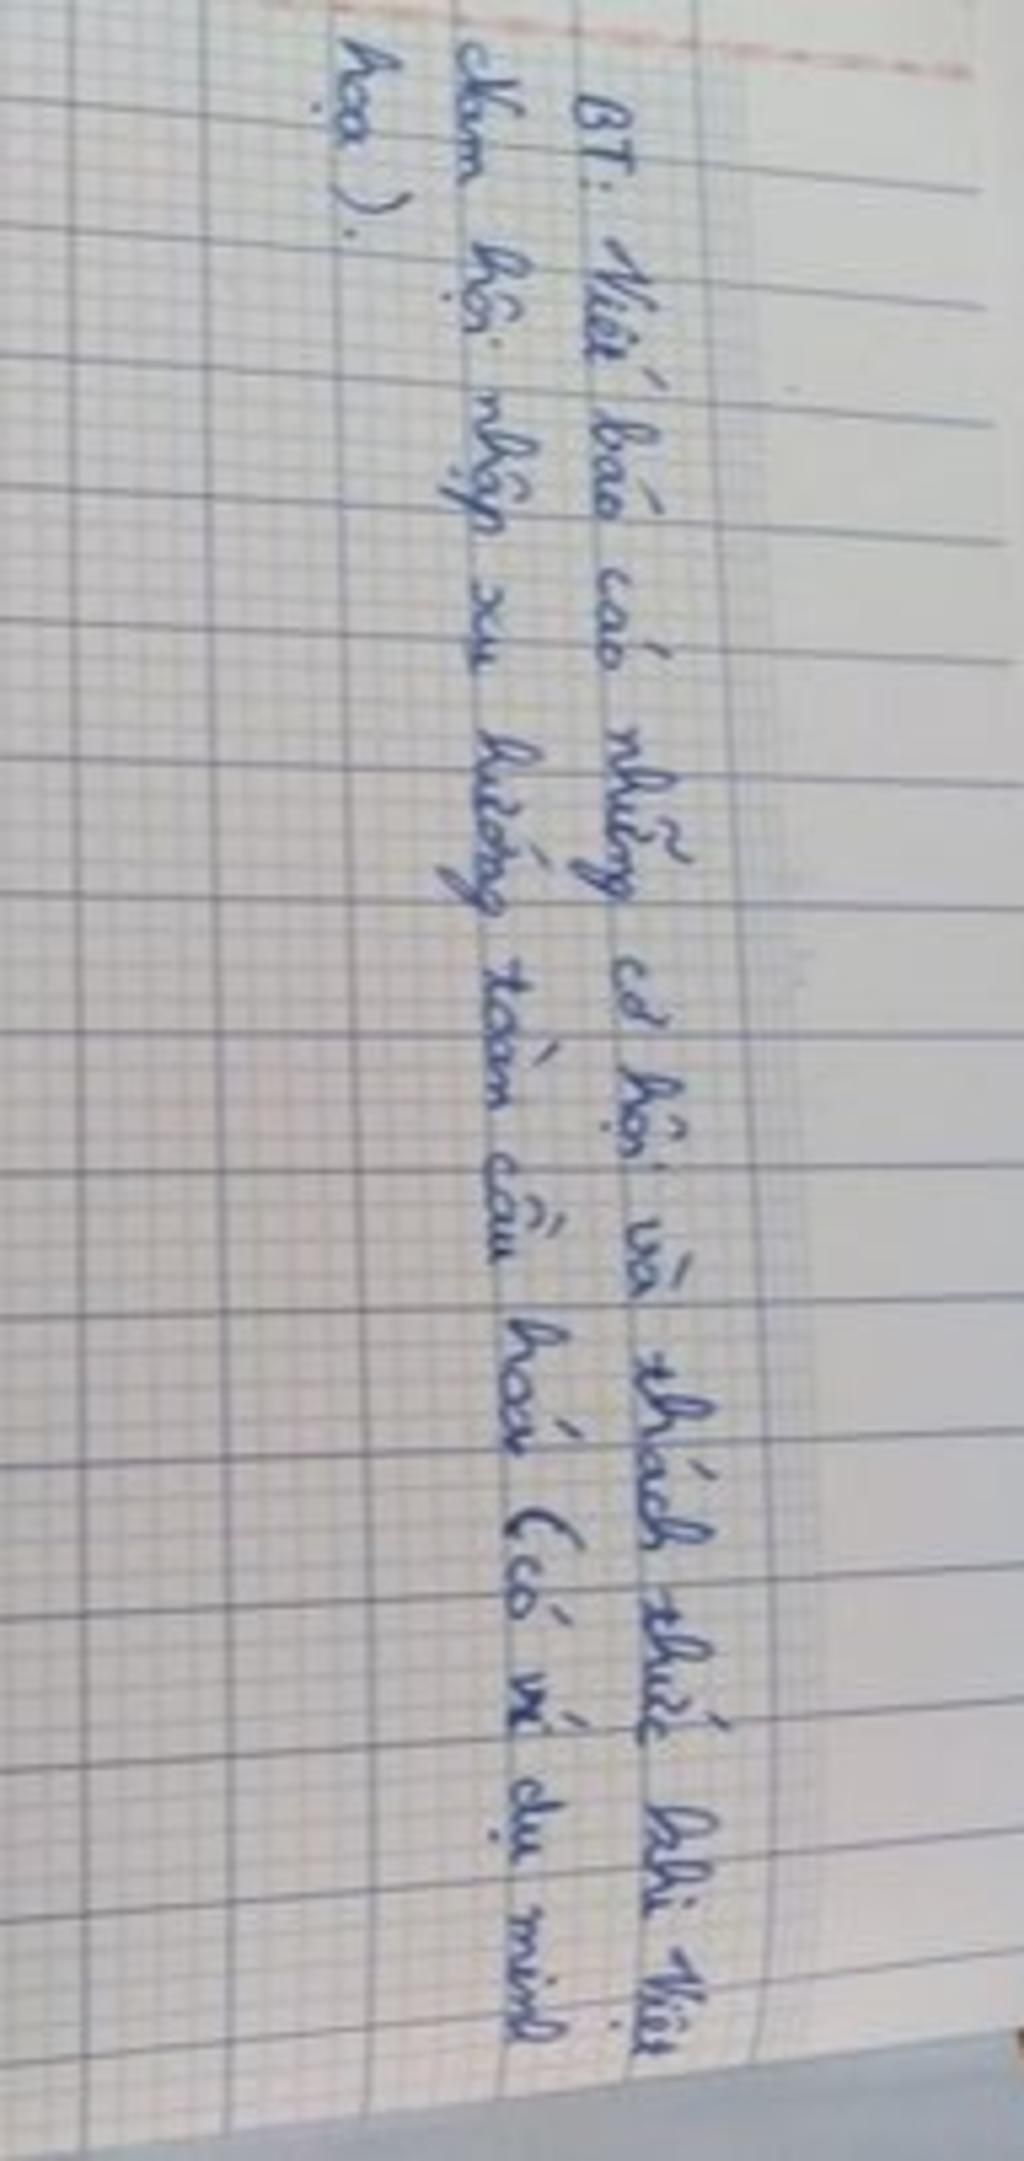 BT: Viết báo cáo những cơ hội và thách thức khi Việt
Nam hội nhập xu hướng toàn cầu hoá (có ví dụ minh
họa).